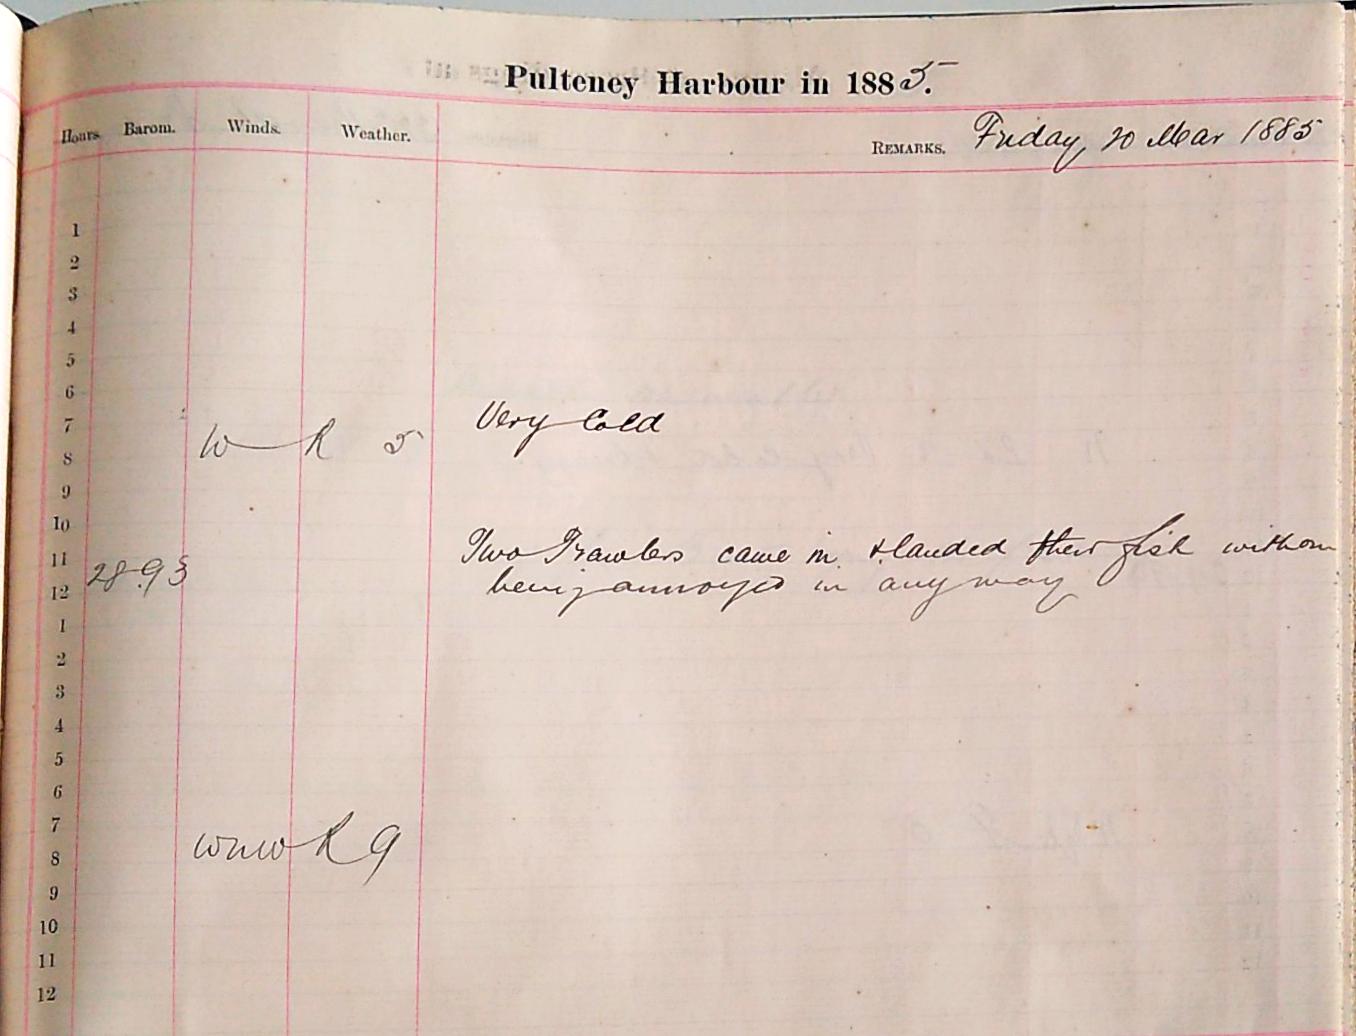 Pulteney Harbour in 1885.
Hours. Barom. Winds. Weather. REMARKS. Friday, 20 Mar 1885
1
2
3
4
5
6
7 Very Cold
W R 5
8
9
10
11 Two Trawlers came in & landed their fish without
28.93
12 being annoyed in any way
1
2
3
4
5
6
7
WNW R 9
8
9
10
11
12